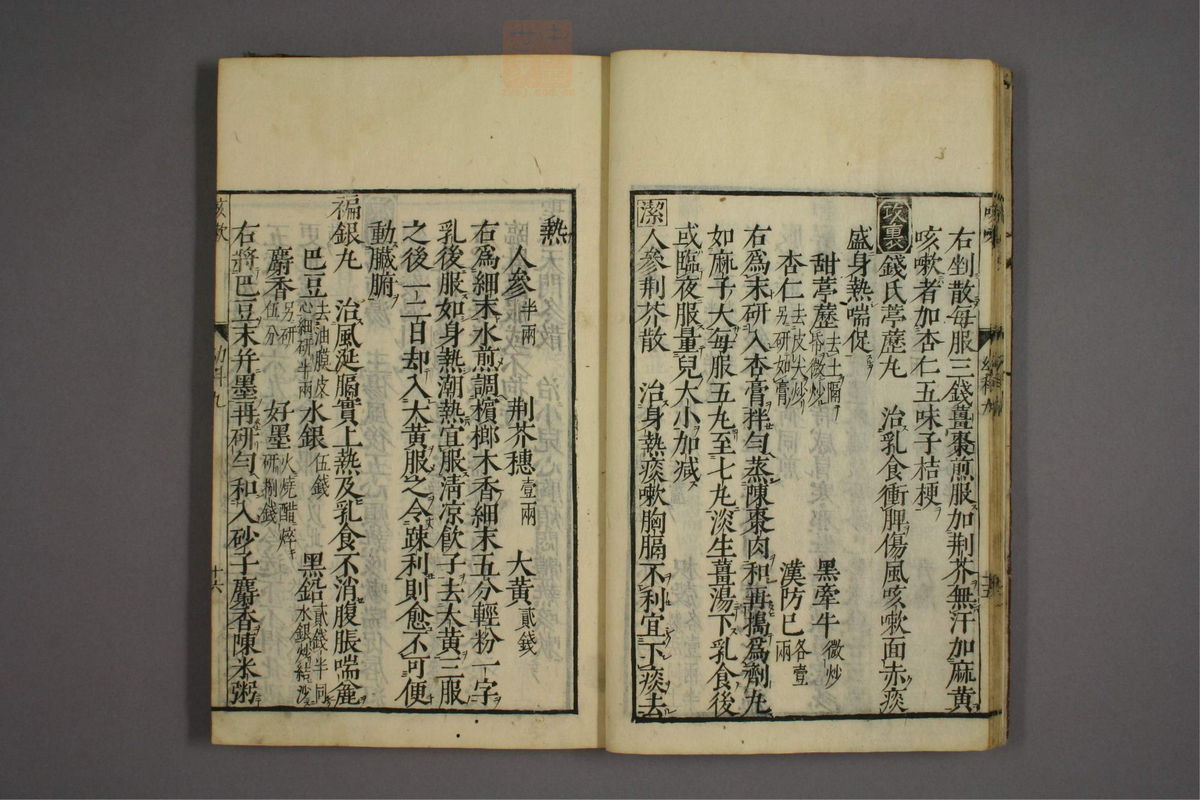 右剉散每服三錢薑棗煎服加荆芥無汗加麻黃
咳嗽者加杏仁五味子桔梗
攻裏 錢氏葶藶丸 治乳食衝脾傷風咳嗽面赤痰
盛身熱喘促
甜葶藶去土隔帋微炒 黑牽牛微炒
杏仁去皮尖炒另研如膏 漢防已各壹兩
右爲末研入杏膏拌勻蒸陳棗肉和再搗爲劑丸
如麻子大每服五丸至七丸淡生薑湯下乳食後
或臨夜服量兒大小加减
潔 人參荆芥散 治身熱痰嗽胸膈不利宜下痰去
熱
人參半兩 荆芥穗壹兩 大黃貳錢
右爲細末水煎調檳榔木香細末五分輕粉一字
乳後服如身熱潮熱宜服清凉飮子去大黃三服
之後一二日却入大黃服之令踈利則愈不可便
動臟腑
褊銀丸 治風涎膈實上熱及乳食不消腹脹喘麄
巴豆去油膜皮心細研半兩 水銀伍錢 黑鉛貳錢半同水銀炒結沙
麝香另研伍分 好墨火燒醋焠研捌錢
右將巴豆末并墨再研勻和入砂子麝香陳米粥
幼科九
十六